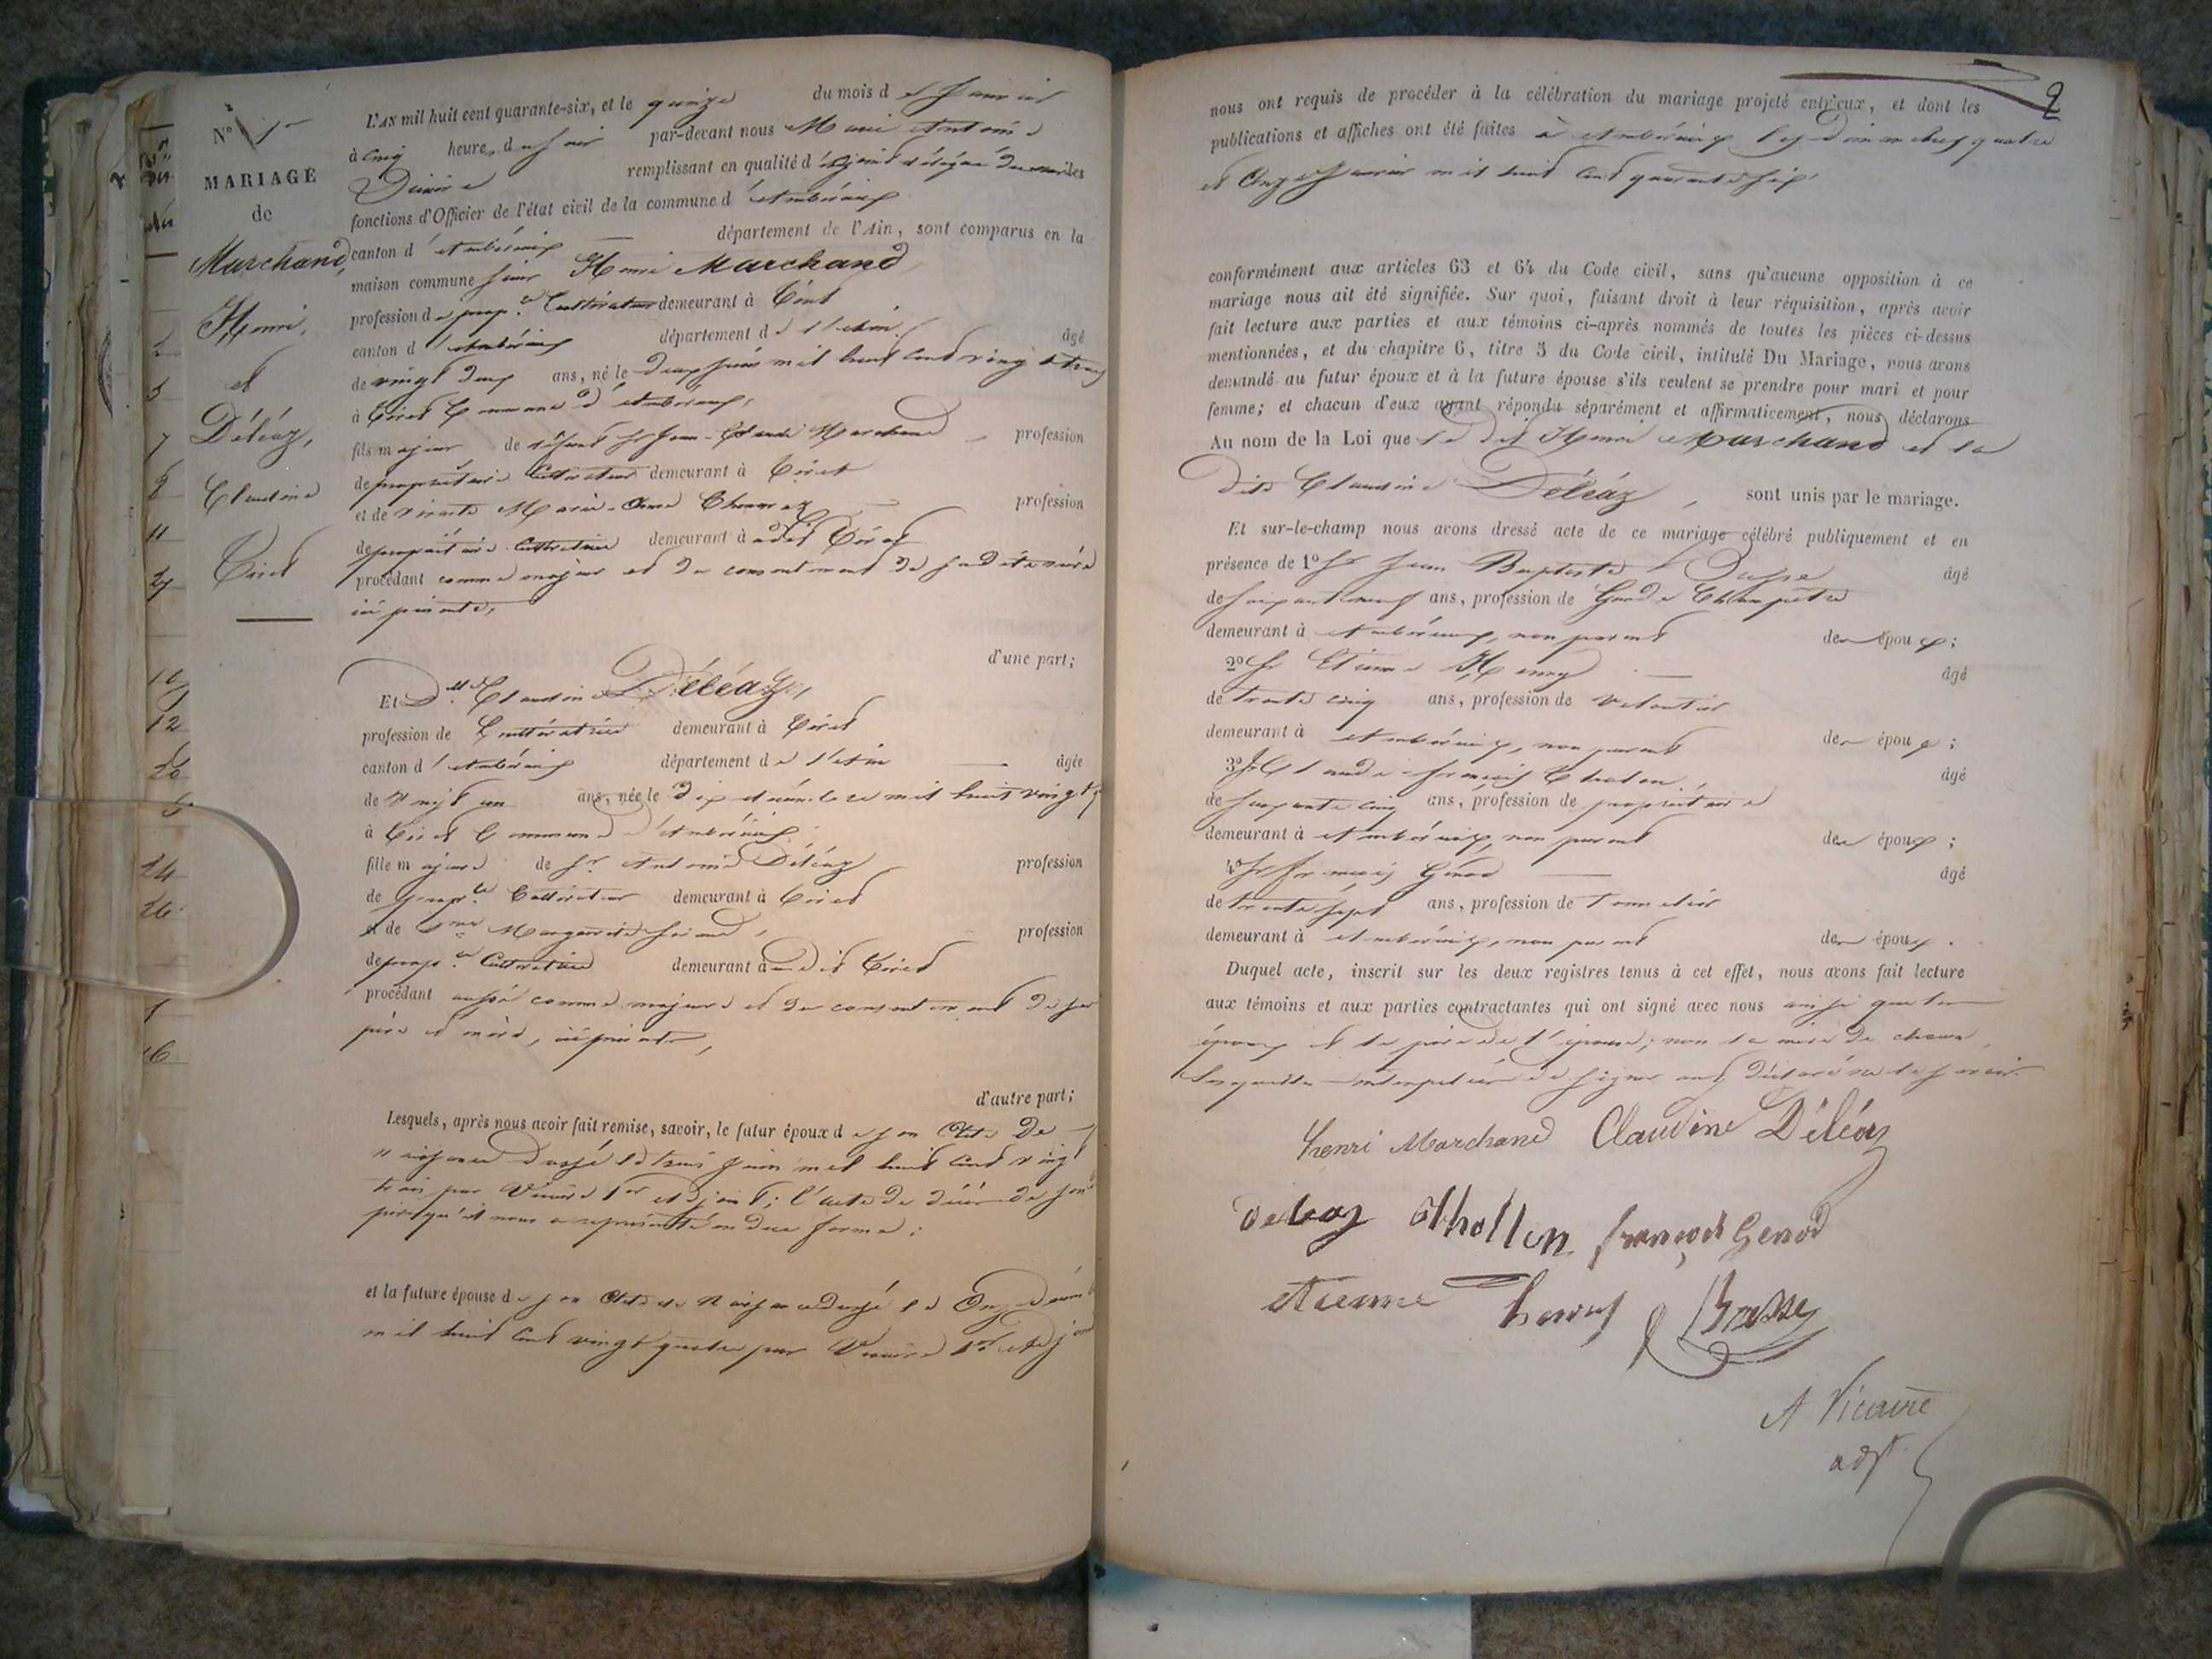 N° 1
MARIAGE
de
Marchand,
Henri,
et
Déléaz,
Claudine
L'AN mil huit cent quarante-six, et le quinze du mois de Janvier
à cinq heures du soir par-devant nous Marie Antoine
remplissant en qualité d'adjoint délégué du maire les
fonctions d'Officier de l'état civil de la commune d'Ambérieux
canton d'Ambérieux département de l'Ain, sont comparus en la
maison commune sieur Henri Marchand
profession de prop.re Cultivateur demeurant à
canton d'Ambérieux département de l'Ain, âgé
de vingt deux ans, né le deux juin mil huit cent vingt trois
à Commune d'Ambérieux,
fils majeur de défunt Sr Jean-Claude Marchand profession
de propriétaire Cultivateur demeurant à
et de vivante Marie-Anne profession
de propriétaire Cultivatrice demeurant à
procédant comme majeur et du consentement de sa dite mère
ici présente,
d'une part;
Et D.lle Claudine Déléaz,
profession de Cultivatrice demeurant à
canton d'Ambérieux département de l'Ain âgée
de vingt un ans, née le dix décembre mil huit vingt
à Commune d'Ambérieux
fille majeure de Sr Antoine Déléaz profession
de prop.re Cultivateur demeurant à
et de Marguerite profession
de prop.re Cultivatrice demeurant à
procédant aussi comme majeure et du consentement de ses
père et mère, ici présents,
d'autre part;
Lesquels, après nous avoir fait remise, savoir, le futur époux de son Acte de
naissance dressé le trois juin mil huit cent vingt
trois par Vicaire 1er adjoint; l'acte de décès de son
père qu'il nous a représenté en due forme;
et la future épouse de son Acte de Naissance dressé le Onze décembre
mil huit cent vingt quatre par Vicaire 1er adjoint
2
nous ont requis de procéder à la célébration du mariage projeté entr'eux, et dont les
publications et affiches ont été faites à Ambérieux les dimanches quatre
et Onze Janvier mil huit cent quarante six,
conformément aux articles 63 et 64 du Code civil, sans qu'aucune opposition à ce
mariage nous ait été signifiée. Sur quoi, faisant droit à leur réquisition, après avoir
fait lecture aux parties et aux témoins ci-après nommés de toutes les pièces ci-dessus
mentionnées, et du chapitre 6, titre 5 du Code civil, intitulé Du Mariage, nous avons
demandé au futur époux et à la future épouse s'ils veulent se prendre pour mari et pour
femme; et chacun d'eux ayant répondu séparément et affirmativement, nous déclarons
Au nom de la Loi que le dit Henri Marchand et la
dite Claudine Déléaz, sont unis par le mariage.
Et sur-le-champ nous avons dressé acte de ce mariage célébré publiquement et en
présence de 1° Sr Jean Baptiste âgé
de soixante neuf ans, profession de Garde Champêtre
demeurant à Ambérieux, non parent des époux;
2° Sr Etienne Henry âgé
de trente cinq ans, profession de
demeurant à Ambérieux, non parent des époux;
3° Sr Claude François âgé
de soixante cinq ans, profession de propriétaire
demeurant à Ambérieux, non parent des époux;
4° Sr François Genod âgé
de trente sept ans, profession de Tonnelier
demeurant à Ambérieux, non parent des époux.
Duquel acte, inscrit sur les deux registres tenus à cet effet, nous avons fait lecture
aux témoins et aux parties contractantes qui ont signé avec nous ainsi que les
époux et le père de l'épouse; non la mère de chacun,
lesquelles interpellées de signer ont déclaré ne le savoir.
henri Marchand Claudine Déléaz
deleaz françois Genod
etienne henry
A Vicaire
adjt